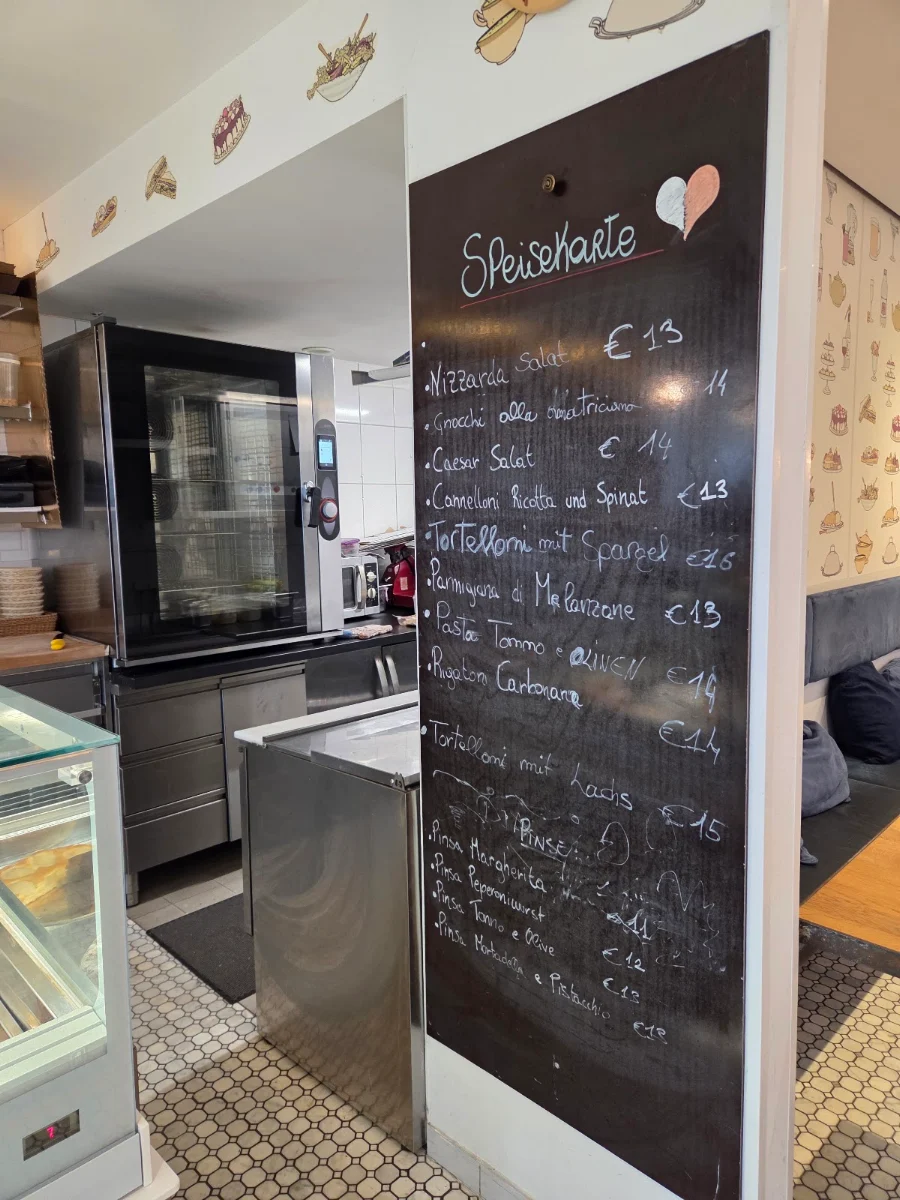 Speisekarte
• Nizzarda Salat € 13
• Gnocchi alla amatriciana 14
• Caesar Salat € 14
• Cannelloni Ricotta und Spinat €13
• Tortelloni mit Spargel €16
• Parmigiana di Melanzane €13
• Pasta Tonno e OLIVEN €14
• Rigatoni Carbonara €14
• Tortelloni mit Lachs €15
PINSE
• Pinsa Margherita €11
• Pinsa Peperoniwurst €12
• Pinsa Tonno e Olive €13
• Pinsa Mortadella e Pistacchio